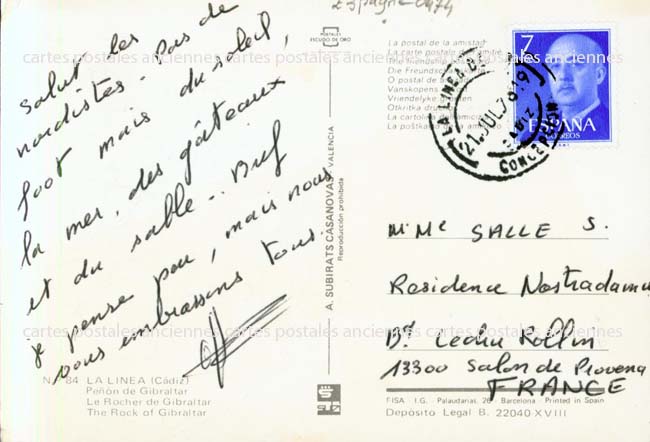 Espagne 0474
salut les
nordistes. Pas de
foot mais du soleil,
la mer, des gâteaux
et du sable.. Bref
je pense peu, mais nous
vous embrassons tous.
N.º 84 LA LINEA (Cádiz)
Peñón de Gibraltar
Le Rocher de Gibraltar
The Rock of Gibraltar
POSTALES
ESCUDO DE ORO
A. SUBIRATS CASANOVAS - VALENCIA
Reproducción prohibida
La postal de la amistad
La carte postale de l'amitié
The friendship
Die Freundschaf
O postal de a
Vanskopens
Vriendelyke
Otkritka dru
La cartolina del
La poštka
7
ESPAÑA
CORREOS
LA LINEA DE LA CONCEPCION
21.JUL.78.19
CADIZ
M. Me SALLE S.
Residence Nostradamus
Bd Ledru Rollin
13300 Salon de Provence
FRANCE
FISA - I.G. - Palaudarias, 26 - Barcelona - Printed in Spain
Depósito Legal B. 22040-XVIII
cartes postales anciennes cartes postales anciennes cartes postales anciennes
cartes postales anciennes cartes postales anciennes cartes postales anciennes